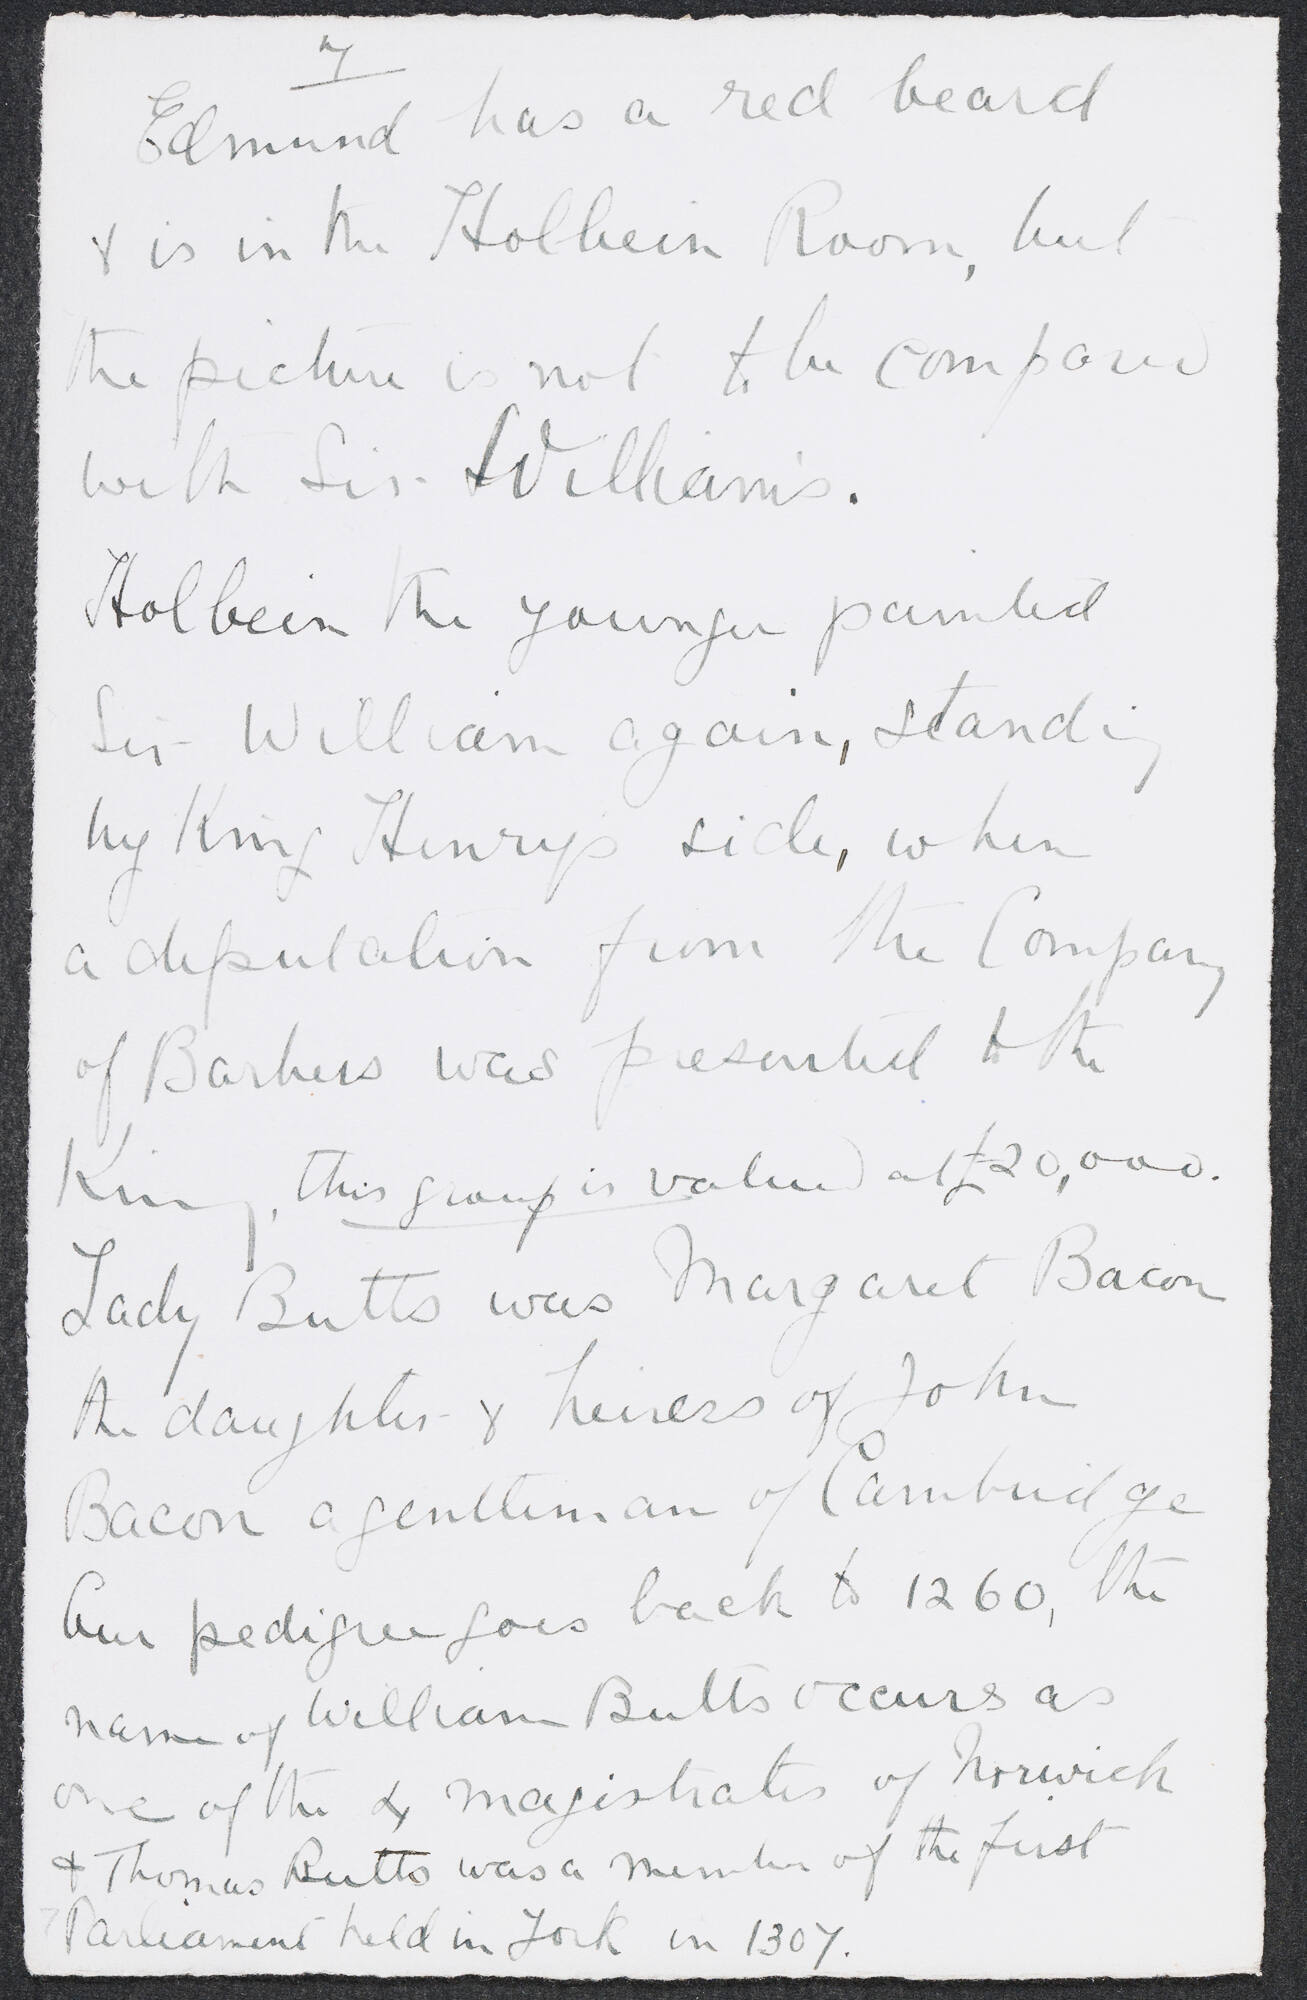 7
Edmund has a red beard
& is in the Holbein Room, but
the picture is not to be compared
with Sir William's.
Holbein the younger painted
Sir William again, standing
by King Henry's side, when
a deputation from the Company
of Barbers was presented to the
King, this group is valued at £20,000.
Lady Butts was Margaret Bacon
the daughter & heiress of John
Bacon a gentleman of Cambridge
Our pedigree goes back to 1260, the
name of William Butts occurs as
one of the 4 magistrates of Norwich
& Thomas Butts was a member of the first
Parliament held in York in 1307.